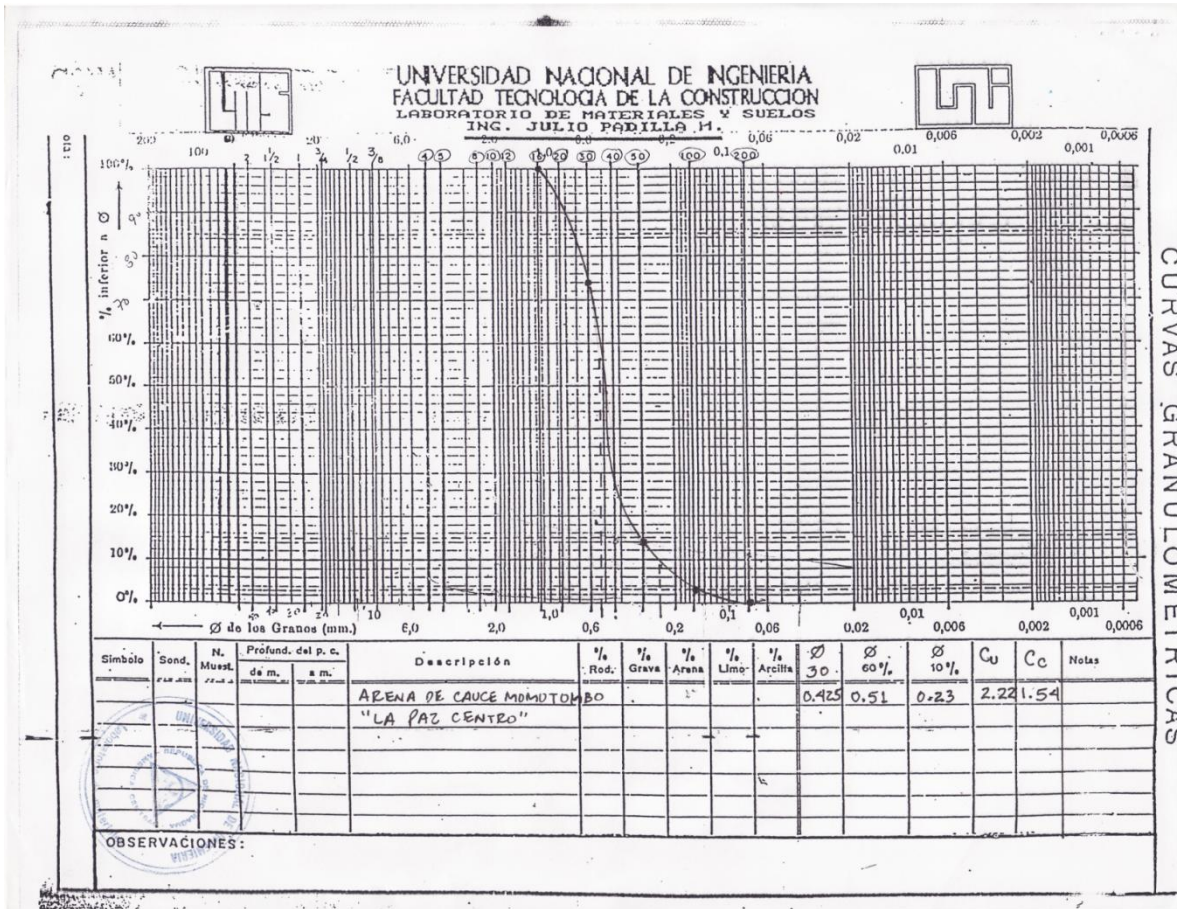 UNIVERSIDAD NACIONAL DE INGENIERIA
FACULTAD TECNOLOGIA DE LA CONSTRUCCION
LABORATORIO DE MATERIALES Y SUELOS
ING. JULIO PADILLA M.
200 100 20 6,0 1,0 0,2 0,1 0,06 0,02 0,01 0,006 0,002 0,001 0,0006
2 1½ 1 ¾ ½ 3/8 4 5 8 10 12 16 20 30 40 50 100 200
100%
% inferior a Ø
60%
50%
40%
30%
20%
10%
0%
10 1,0 0,1 0,01 0,001
Ø de los Granos (mm.) 6,0 2,0 0,6 0,2 0,06 0,02 0,006 0,002 0,0006
CURVAS GRANULOMETRICAS
Simbolo Sond. N. Muest. Profund. del p. c. de m. a m. Descripción % Rod. % Grava % Arena % Limo % Arcilla Ø 30 Ø 60% Ø 10% Cu Cc Notas
ARENA DE CAUCE MOMOTOMBO 0.425 0.51 0.23 2.22 1.54
"LA PAZ CENTRO"
UNIVERSIDAD NACIONAL DE INGENIERIA
OBSERVACIONES: